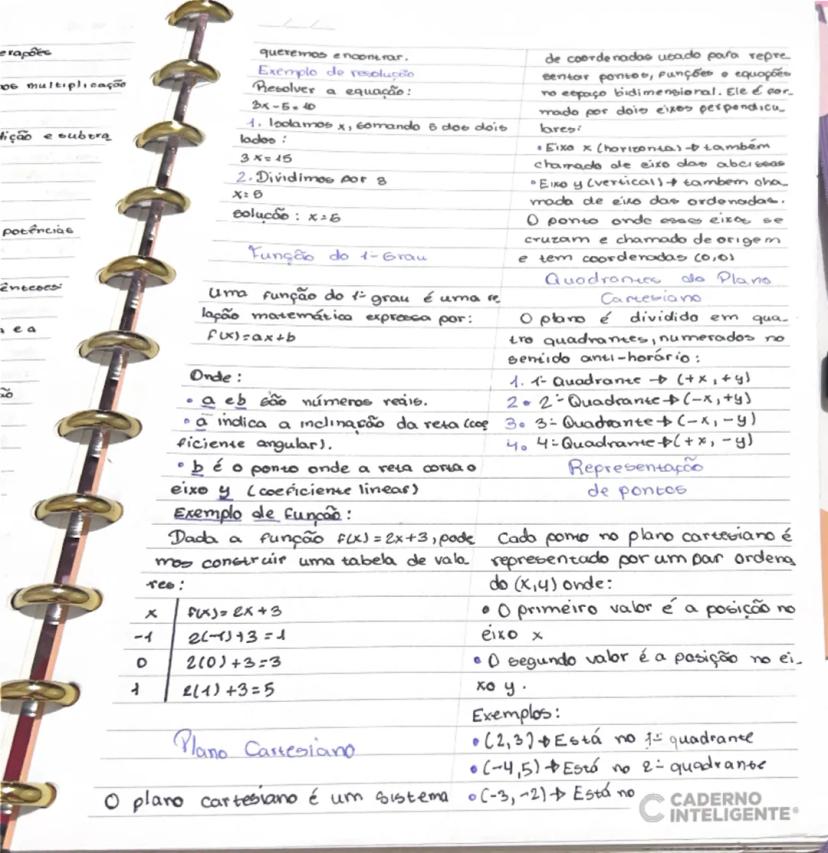 erações
os multiplicação
ição e subtra
potências
ênteses:
e a
ão
queremos encontrar.
Exemplo de resolução
Resolver a equação:
3x-5=10
1. Isolamos x, somando 5 dos dois
lados:
3x=15
2. Dividimos por 3
x=5
solução: x=5
Função do 1- Grau
Uma função do 1º grau é uma re
lação matemática expressa por:
f(x)=ax+b
Onde:
• a e b são números reais.
• a indica a inclinação da reta (coe
ficiente angular).
• b é o ponto onde a reta corta o
eixo y (coeficiente linear)
Exemplo de função:
Dada a função f(x)=2x+3, pode
mos construir uma tabela de valo
res:
x f(x)=2x+3
-1 2(-1)+3=1
0 2(0)+3=3
1 2(1)+3=5
Plano Cartesiano
O plano cartesiano é um sistema
de coordenadas usado para repre_
sentar pontos, funções e equações
no espaço bidimensional. Ele é for_
mado por dois eixos perpendicu_
lares:
• Eixo x (horizontal) → também
chamado de eixo das abcissas
• Eixo y (vertical) → tambem cha_
mado de eixo das ordenadas.
O ponto onde esses eixos se
cruzam e chamado de origem
e tem coordenadas (0,0)
Quadrantes do Plano
Cartesiano
O plano é dividido em qua_
tro quadrantes, numerados no
sentido anti-horário:
1. 1º Quadrante → (+x, +y)
2. 2º Quadrante → (-x, +y)
3. 3º Quadrante → (-x, -y)
4. 4º Quadrante → (+x, -y)
Representação
de pontos
Cada ponto no plano cartesiano é
representado por um par ordena
do (x,y) onde:
• O primeiro valor é a posição no
eixo x
• O segundo valor é a posição no ei_
xo y.
Exemplos:
• (2,3) → Está no 1º quadrante
• (-4,5) → Está no 2º quadrante
• (-3,-2) → Está no
CADERNO
INTELIGENTE®